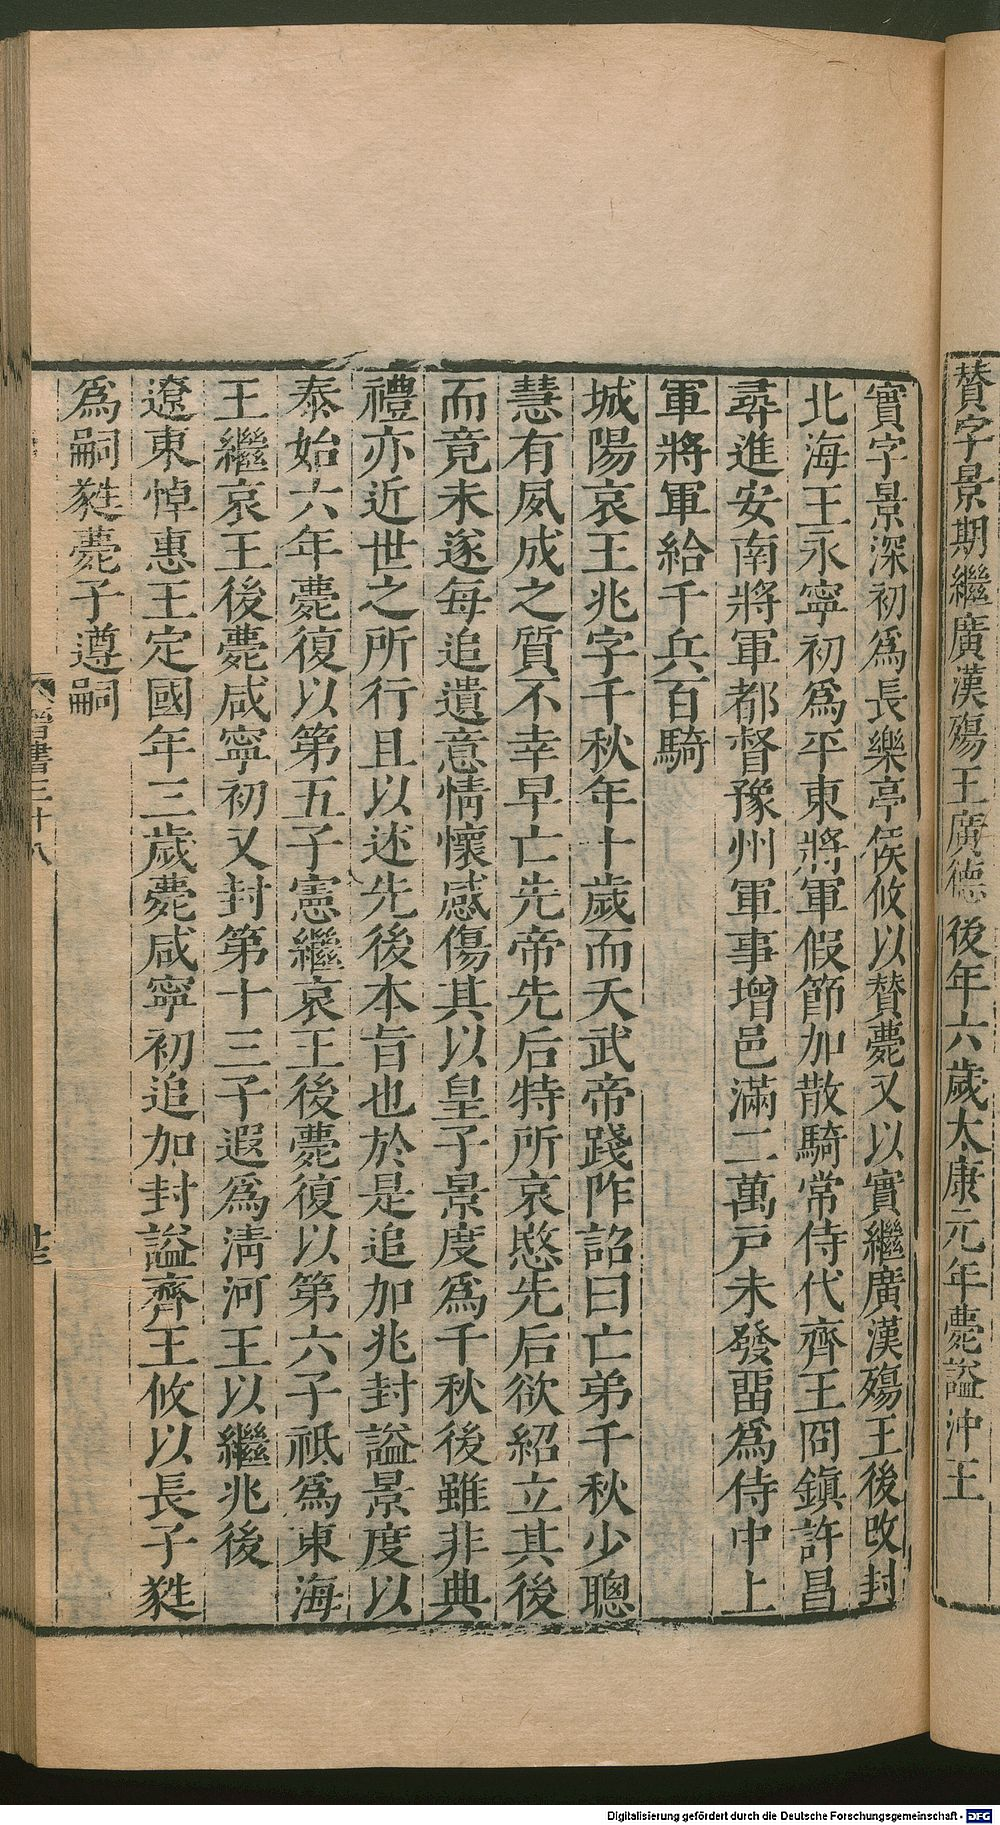 贊字景期繼廣漢殤王廣德後年六歲太康元年薨謚沖王
實字景深初爲長樂亭侯攸以贊薨又以實繼廣漢殤王後改封
北海王永寧初爲平東將軍假節加散騎常侍代齊王冏鎮許昌
尋進安南將軍都督豫州軍事增邑滿二萬戸未發畱爲侍中上
軍將軍給千兵百騎
城陽哀王兆字千秋年十歲而夭武帝踐阼詔曰亡弟千秋少聰
慧有夙成之質不幸早亡先帝先后特所哀愍先后欲紹立其後
而竟未遂每追遺意情懷感傷其以皇子景度爲千秋後雖非典
禮亦近世之所行且以述先後本旨也於是追加兆封謚景度以
泰始六年薨復以第五子憲繼哀王後薨復以第六子祗爲東海
王繼哀王後薨咸寧初又封第十三子遐爲淸河王以繼兆後
遼東悼惠王定國年三歲薨咸寧初追加封謚齊王攸以長子蕤
爲嗣蕤薨子遵嗣
晉書三十八
十三
Digitalisierung gefördert durch die Deutsche Forschungsgemeinschaft - DFG